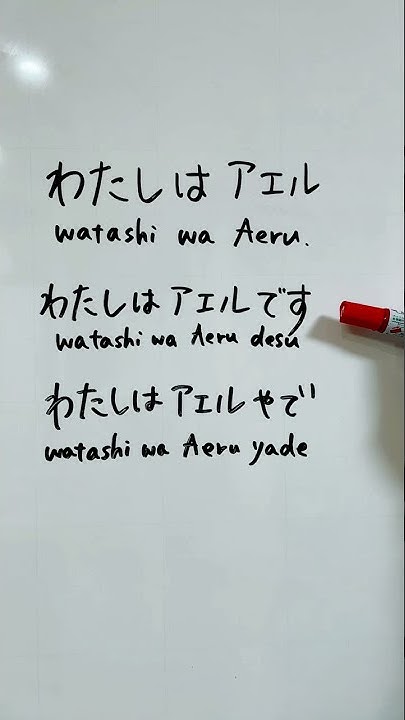 わたしは アエル
watashi wa Aeru.
わたしは アエルです
watashi wa Aeru desu
わたしは アエル やで
watashi wa Aeru yade